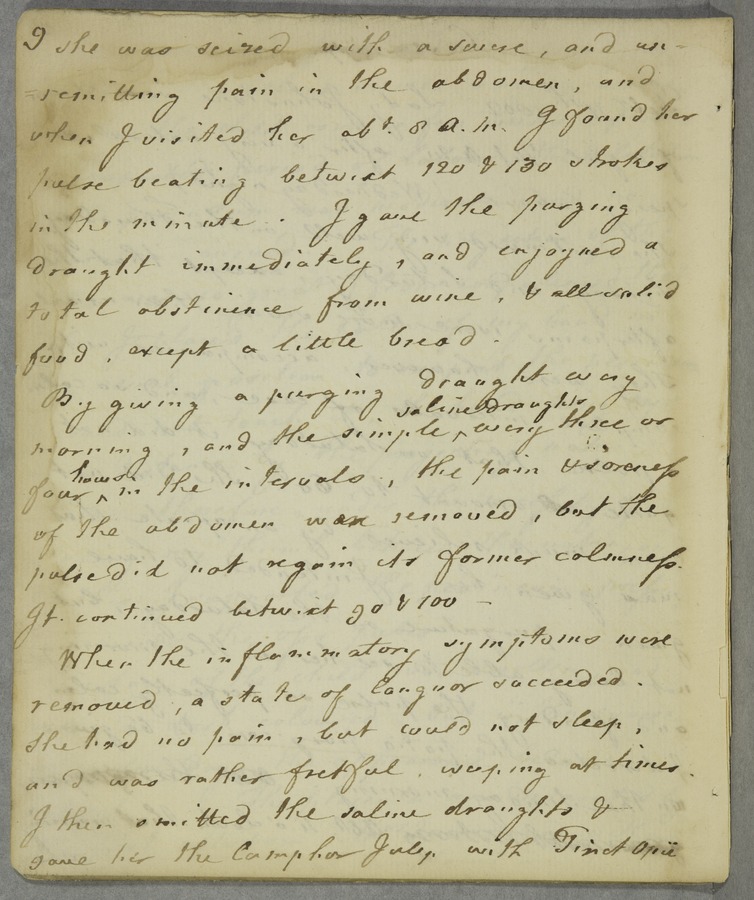 9 she was seized with a severe, and un-
=remitting pain in the abdomen, and
when I visited her abt. 8 a.m. I found her
pulse beating betwixt 120 & 130 strokes
in the minute. I gave the purging
draught immediately, and enjoyned a
total abstinence from wine, & all solid
food, except a little bread.
By giving a purging draught every
saline draughts
morning, and the simple ^ every three or
hours
four ^ in the intervals, the pain & soreness
of the abdomen was removed, but the
pulse did not regain its former calmness.
It continued betwixt 90 & 100 —
When the inflammatory symptoms were
removed, a state of languor succeeded.
She had no pain, but could not sleep,
and was rather fretful, weeping at times.
I then omitted the saline draughts &
gave her the Camphor Julep with Tinct Opii